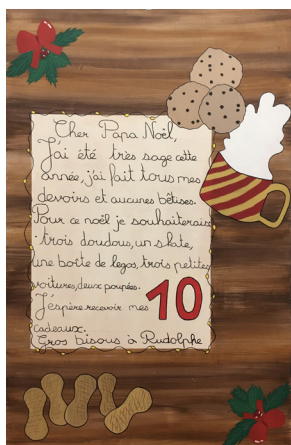 Cher Papa Noël,
J'ai été très sage cette
année, j'ai fait tous mes
devoirs et aucunes bêtises.
Pour ce noël je souhaiterais
trois doudous, un skate,
une boîte de legos, trois petites
voitures, deux poupées.
J'éspère recevoir mes 10
cadeaux.
Gros bisous à Rudolphe